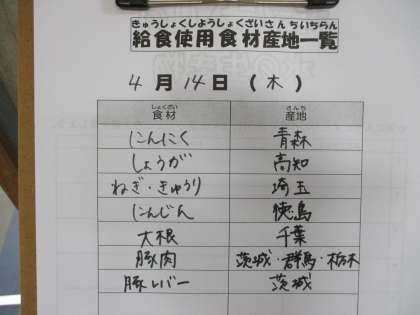 きゅうしょくしようしょくざいさんちいちらん
給食使用食材産地一覧
4月14日(木)
しょくざい さんち
食材 産地
にんにく 青森
しょうが 高知
ねぎ・きゅうり 埼玉
にんじん 徳島
大根 千葉
豚肉 茨城・群馬・栃木
豚レバー 茨城